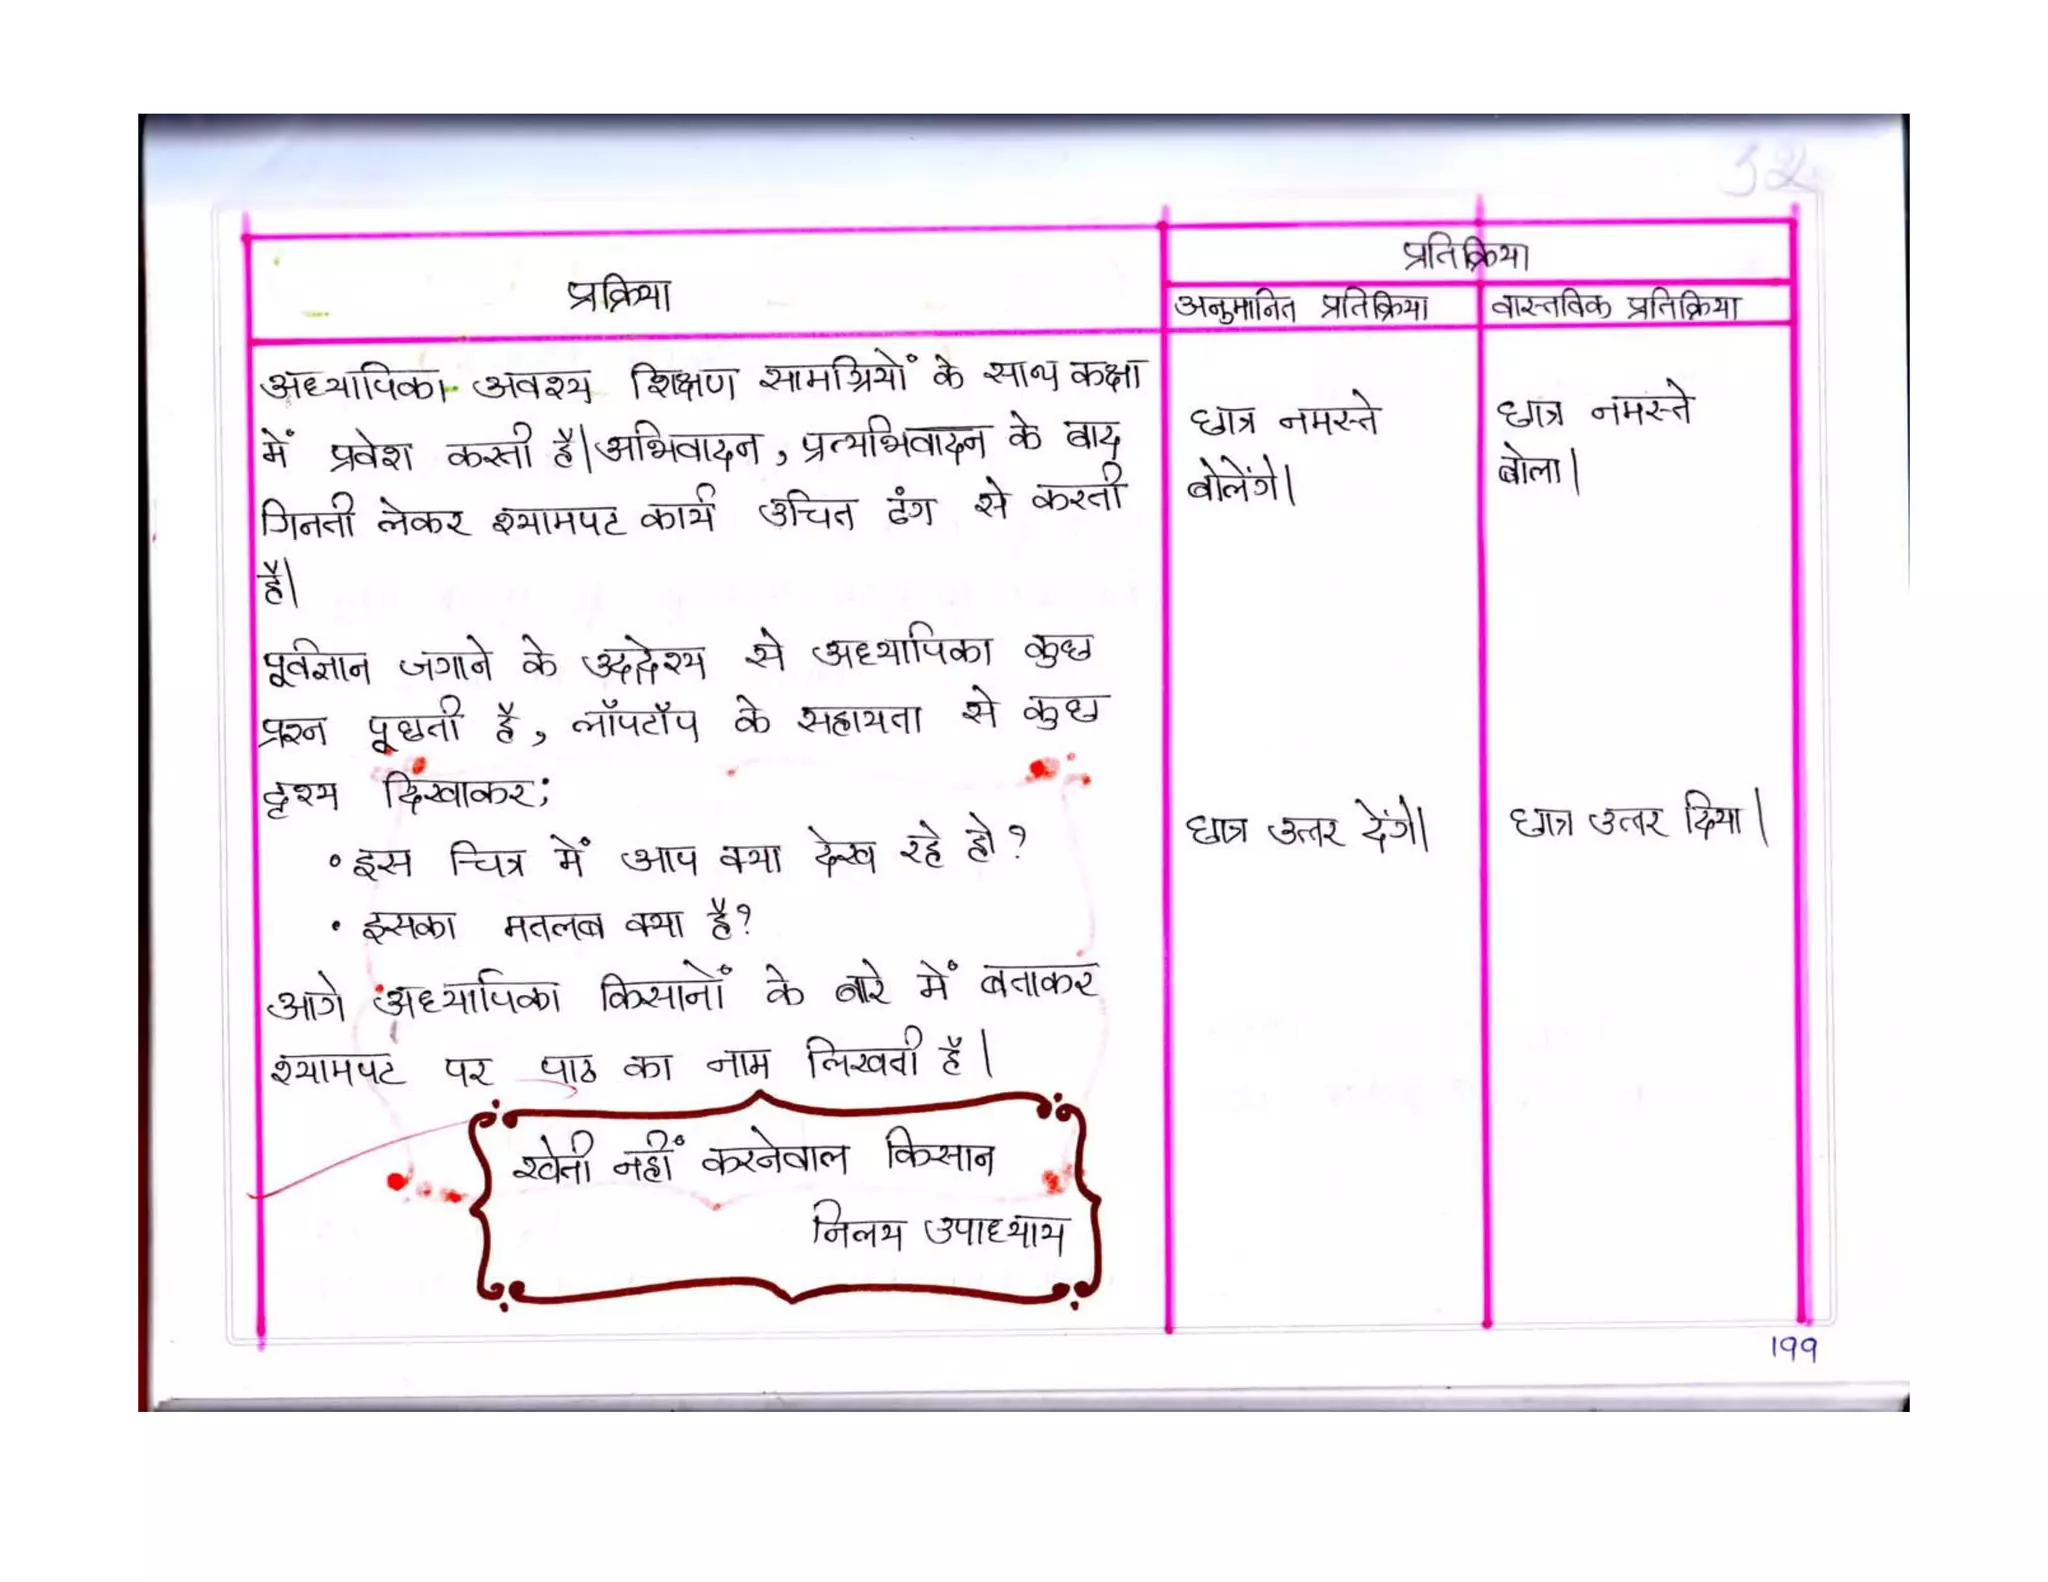 प्रतिक्रिया
प्रक्रिया
अनुमानित प्रतिक्रिया
वास्तविक प्रतिक्रिया
अध्यापिका अवश्य शिक्षण सामग्रियों के साथ कक्षा
में प्रवेश करती है। अभिवादन, प्रत्यभिवादन के बाद
गिनती लेकर श्यामपट कार्य उचित ढंग से करती
है।
छात्र नमस्ते
बोलेंगे।
छात्र नमस्ते
बोला।
पूर्वज्ञान जगाने के उद्देश्य से अध्यापिका कुछ
प्रश्न पूछती है, लॉपटॉप के सहायता से कुछ
दृश्य दिखाकर;
• इस चित्र में आप क्या देख रहे हो?
• इसका मतलब क्या है?
छात्र उत्तर देंगे।
छात्र उत्तर दिया।
आगे अध्यापिका किसानों के बारे में बताकर
श्यामपट पर पाठ का नाम लिखती है।
खेती नहीं करनेवाल किसान
निलय उपाध्याय
199